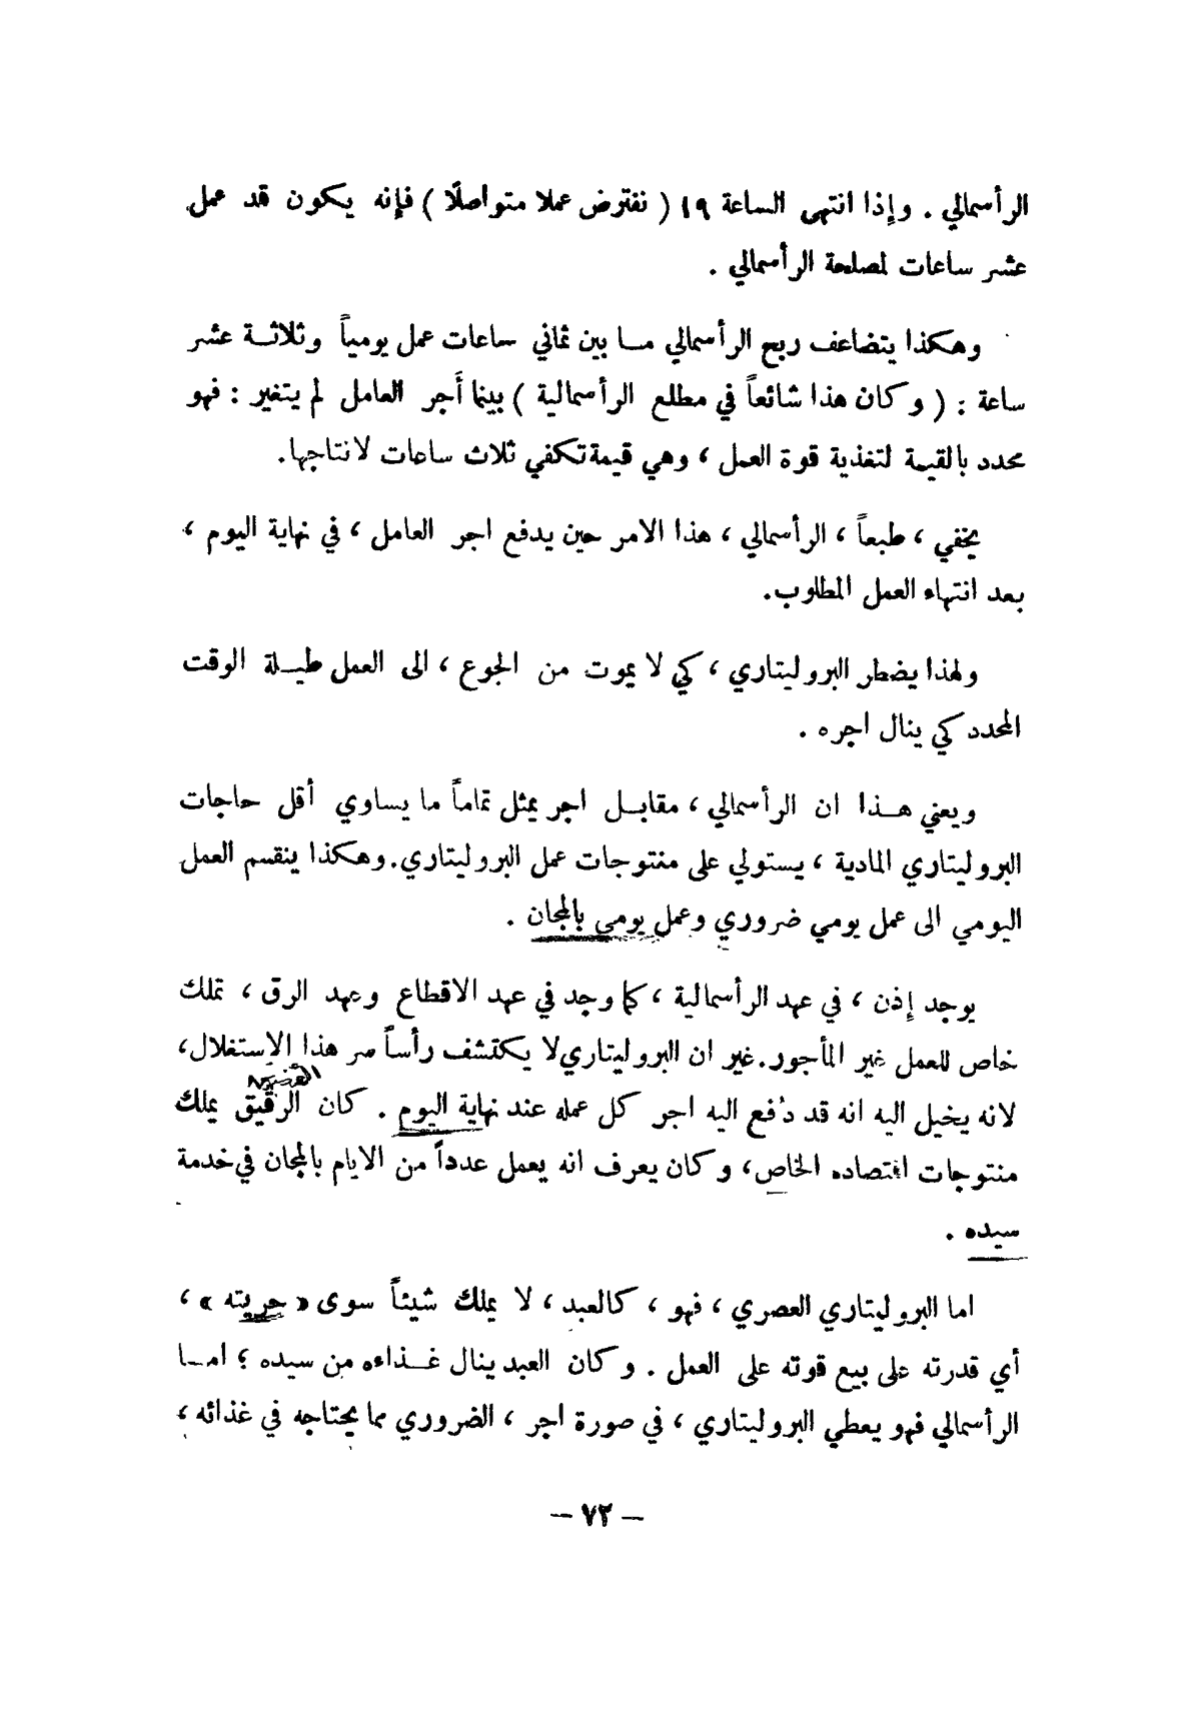 الرأسمالي . وإذا انتهى الساعة ١٩ ( نفترض عملا متواصلًا ) فإنه يكون قد عمل
عشر ساعات لمصلحة الرأسمالي .
وهكذا يتضاعف ربح الرأسمالي مـا بين ثماني ساعات عمل يومياً وثلاثـة عشر
ساعة : ( وكان هذا شائعاً في مطلع الرأسمالية ) بينما أَجر العامل لم يتغير : فهو
محدد بالقيمة لتغذية قوة العمل ، وهي قيمة تكفي ثلاث ساعات لانتاجها.
يخفي ، طبعاً ، الرأسمالي ، هذا الامر حين يدفع اجر العامل ، في نهاية اليوم ،
بعد انتهاء العمل المطلوب.
ولهذا يضطر البروليتاري ، كي لا يموت من الجوع ، الى العمل طيـلة الوقت
المحدد كي ينال اجره .
ويعني هـذا ان الرأسمالي ، مقابـل اجر يمثل تماماً ما يساوي أقل حاجات
البروليتاري المادية ، يستولي على منتوجات عمل البروليتاري. وهكذا ينقسم العمل
اليومي الى عمل يومي ضروري وعمل يومي بالمجان .
يوجد إذن ، في عهد الرأسمالية ، كما وجد في عهد الاقطاع وعهد الرق ، تملك
خاص للعمل غير المأجور. غير ان البروليتاري لا يكتشف رأساً سر هذا الاستغلال،
لانه يخيل اليه انه قد دُفع اليه اجر كل عمله عند نهاية اليوم . كان الرقيق يملك
منتوجات اقتصاده الخاص، وكان يعرف انه يعمل عدداً من الايام بالمجان في خدمة
سيده .
اما البروليتاري العصري ، فهو ، كالعبد ، لا يملك شيئاً سوى « حريته » ،
أي قدرته على بيع قوته على العمل . وكان العبد ينال غـذاءه من سيده ؛ امـا
الرأسمالي فهو يعطي البروليتاري ، في صورة اجر ، الضروري مما يحتاجه في غذائه ،
– ٧٢ –